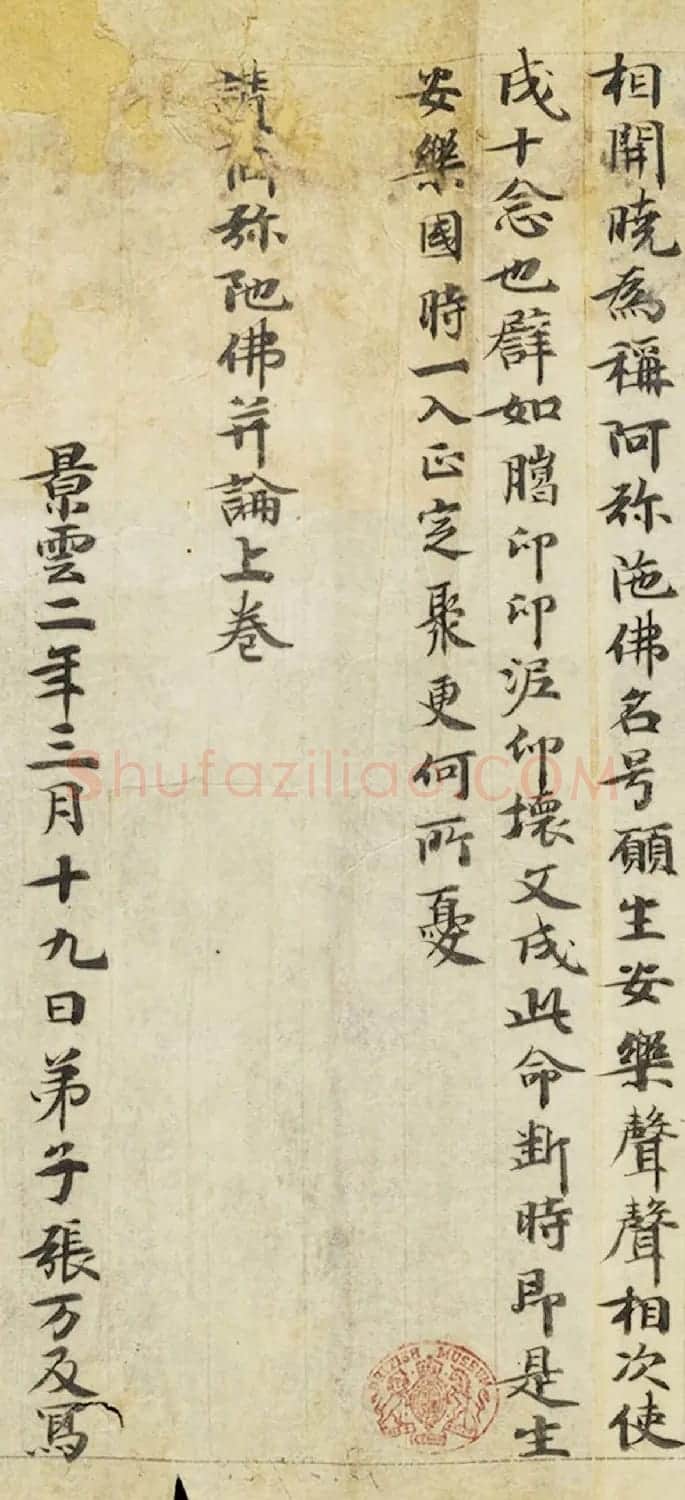 相開曉為稱阿弥陁佛名号願生安樂聲聲相次使
成十念也辟如䐉印印泥仰壞文成此命断時即是生
安樂國時一入正定聚更何所憂
讃阿弥陁佛并論上卷
景雲二年三月十九日弟子張万及寫
Shufaziliao.COM
BRITISH MUSEUM